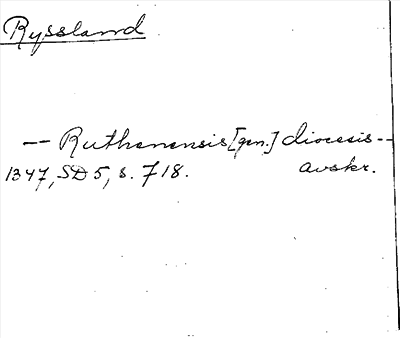 Ryssland
-- Ruthenensis [gen.] diocesis --
1347, SD 5, s. 718. avskr.